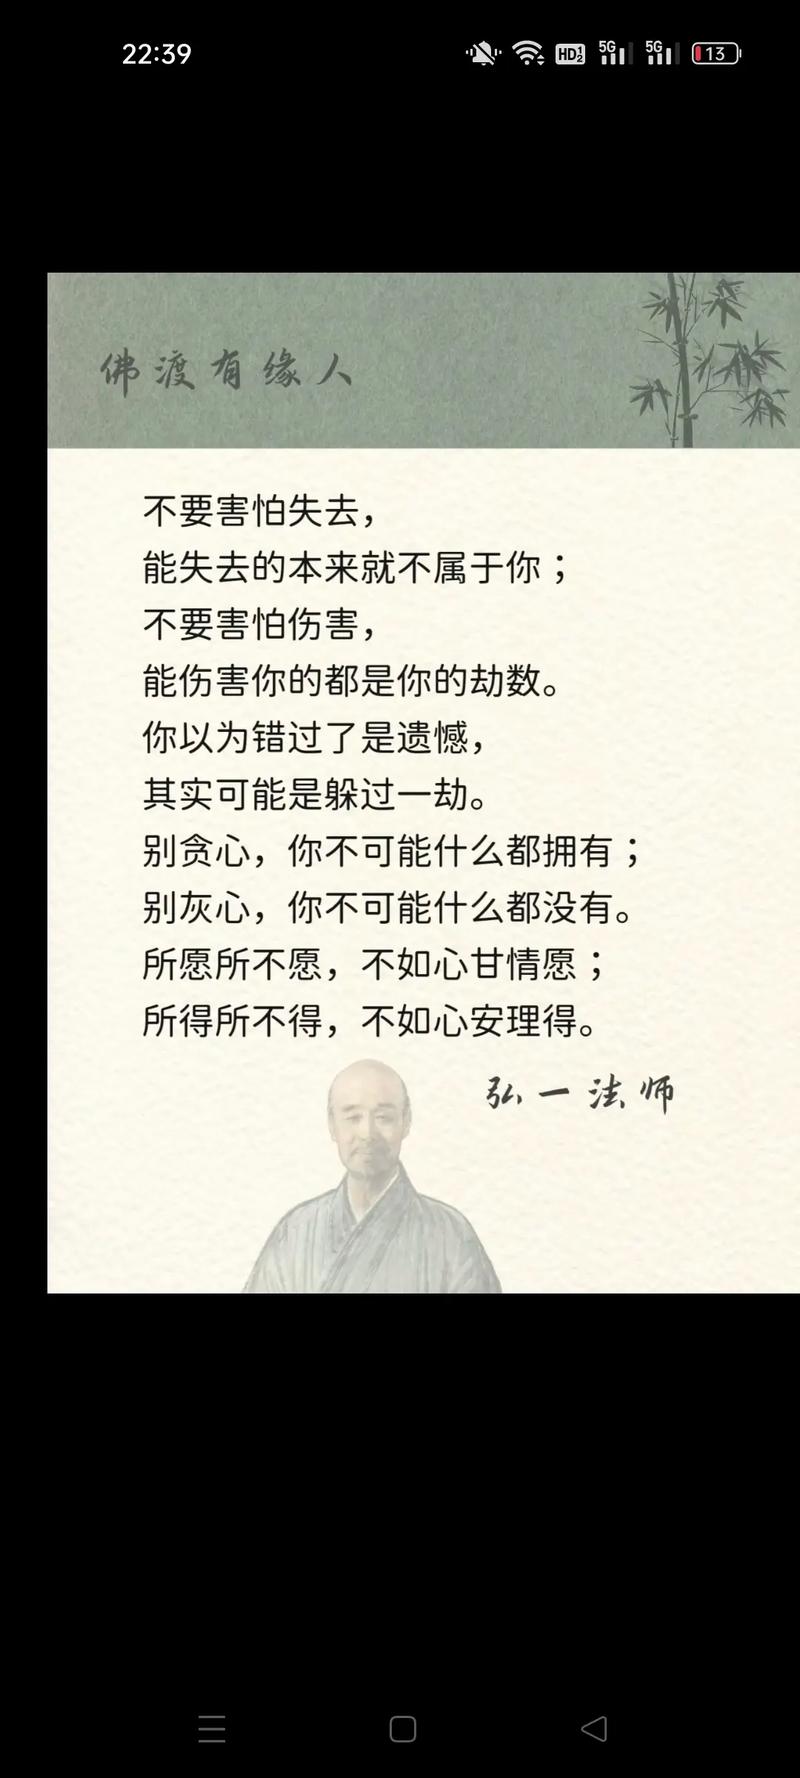 22:39
HD 1 2 5G 5G 13
佛渡有缘人
不要害怕失去，
能失去的本来就不属于你；
不要害怕伤害，
能伤害你的都是你的劫数。
你以为错过了是遗憾，
其实可能是躲过一劫。
别贪心，你不可能什么都拥有；
别灰心，你不可能什么都没有。
所愿所不愿，不如心甘情愿；
所得所不得，不如心安理得。
弘一法师